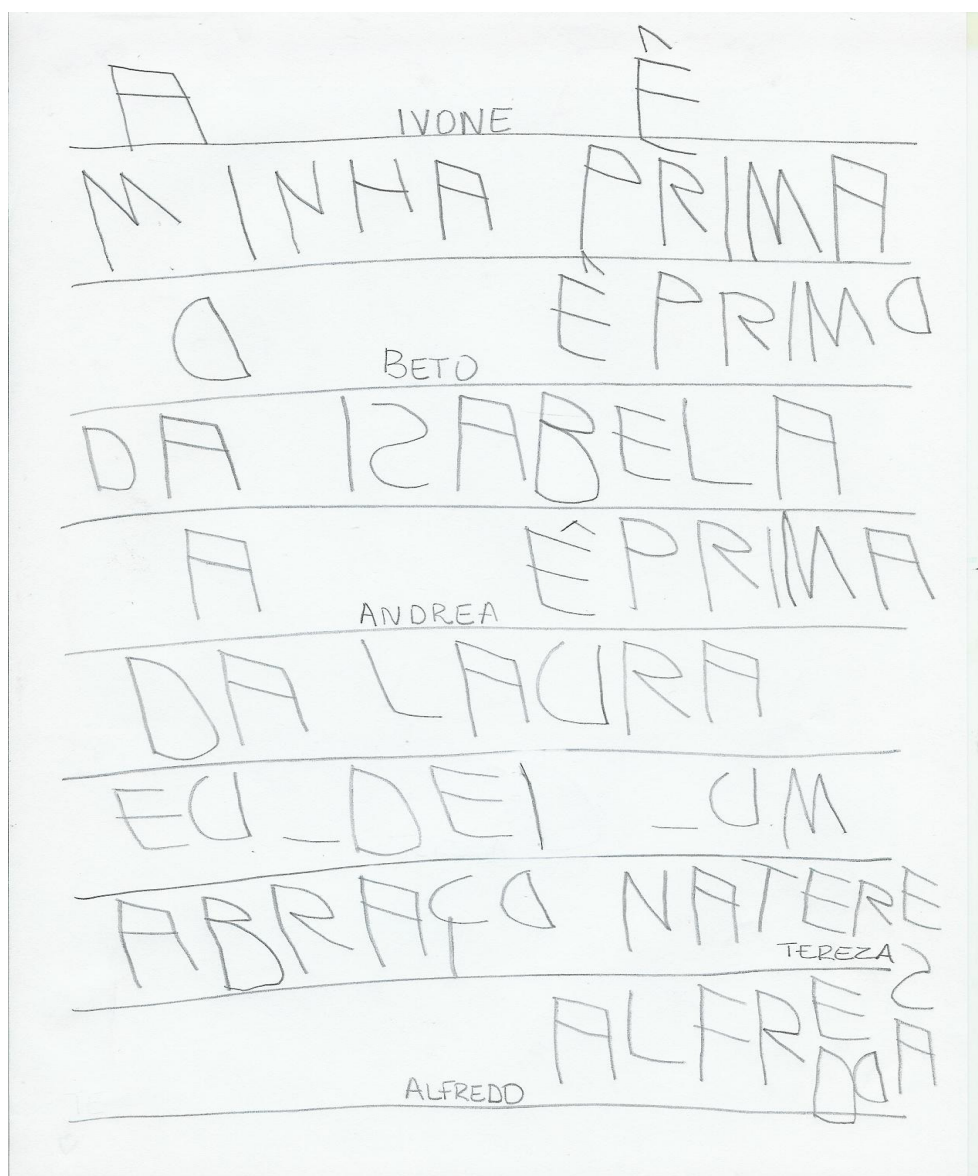 A IVONE Ê
MINHA PRIMA
O BETO Ê PRIMO
DA ISABELA
A ANDREA Ê PRIMA
DA LAURA
EU_DEI _UM
ABRAÇO NA TERESA
TEREZA
ALFREDO
ALFREDO